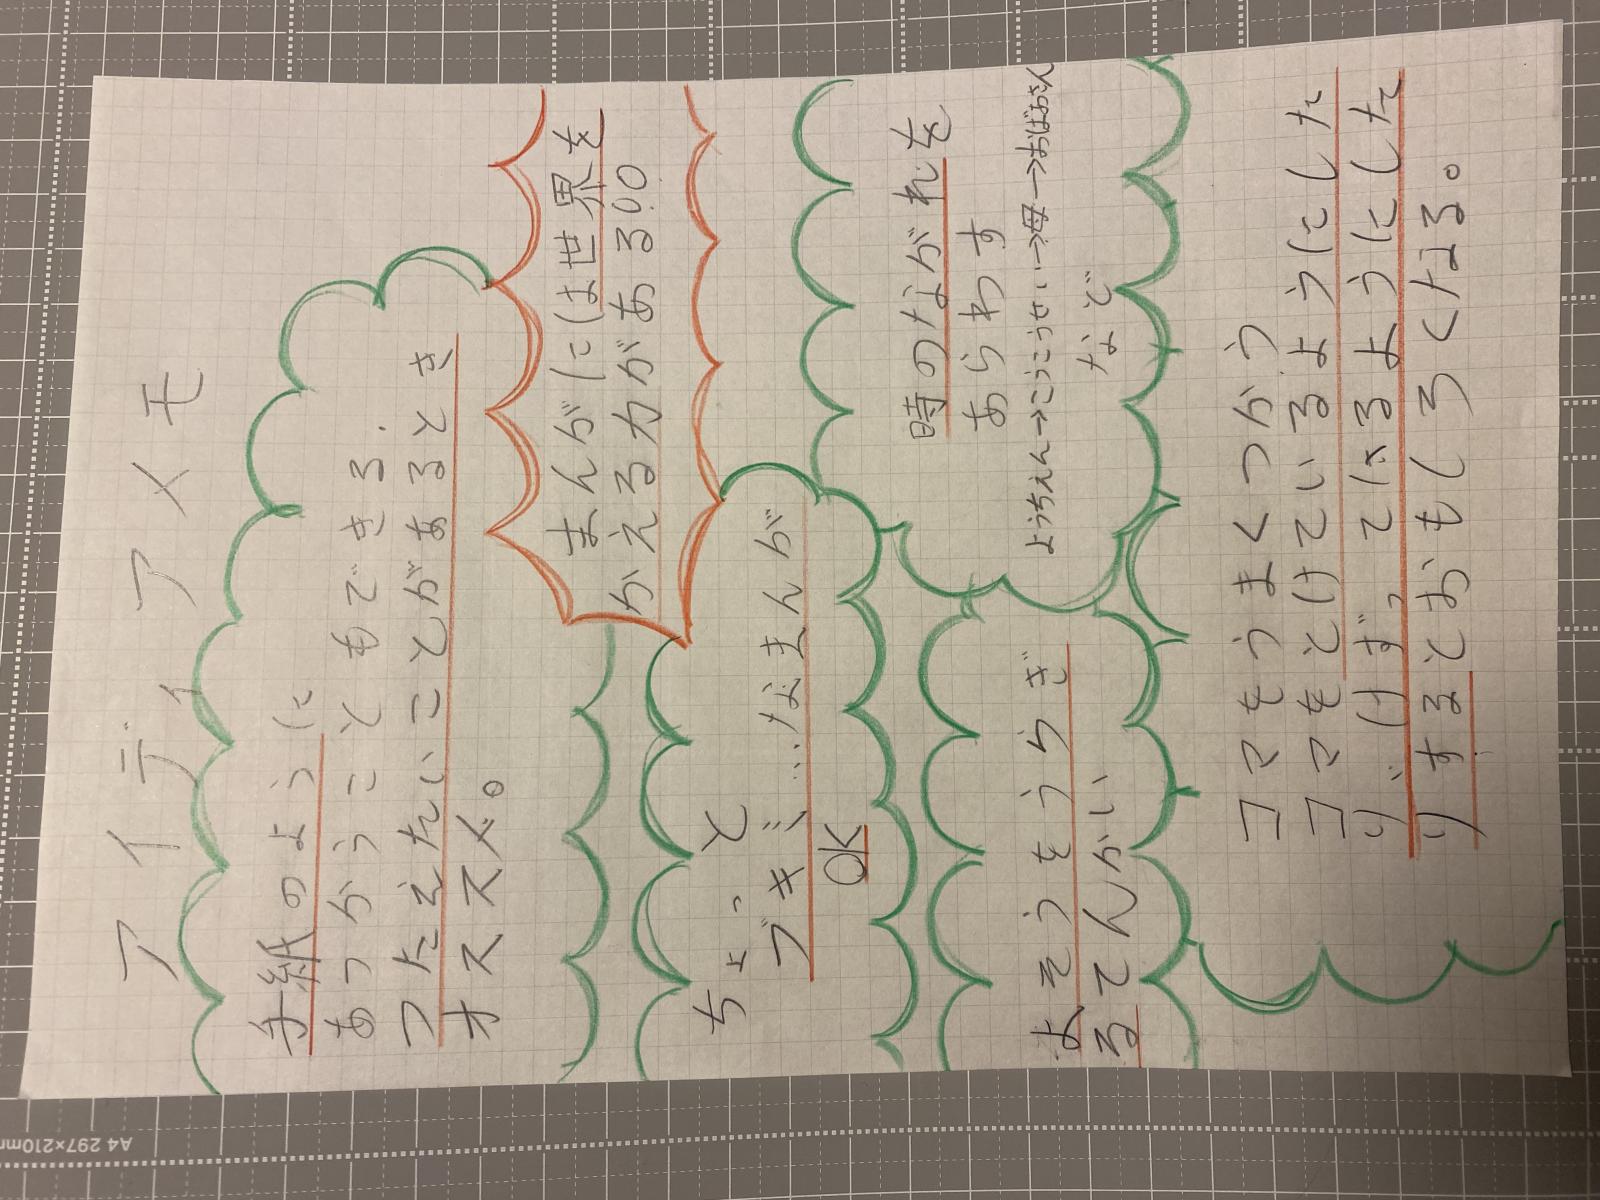 アイディアメモ
手紙のように
あつかうこともできる.
つたえたいことがあるとき
オススメ。
まんがには世界を
かえる力がある!!
ちょっと
ブキミ…なまんが
OK
時のながれを
あらわす
ようちえん→こうこうせい→母→おばあさん
など
よそうもうらぎ
るてんかい
コマもうまくつかう
コマもとけているようにした
り、けずってはるようにした
りするとおもしろくなる。
A4 297×210mm